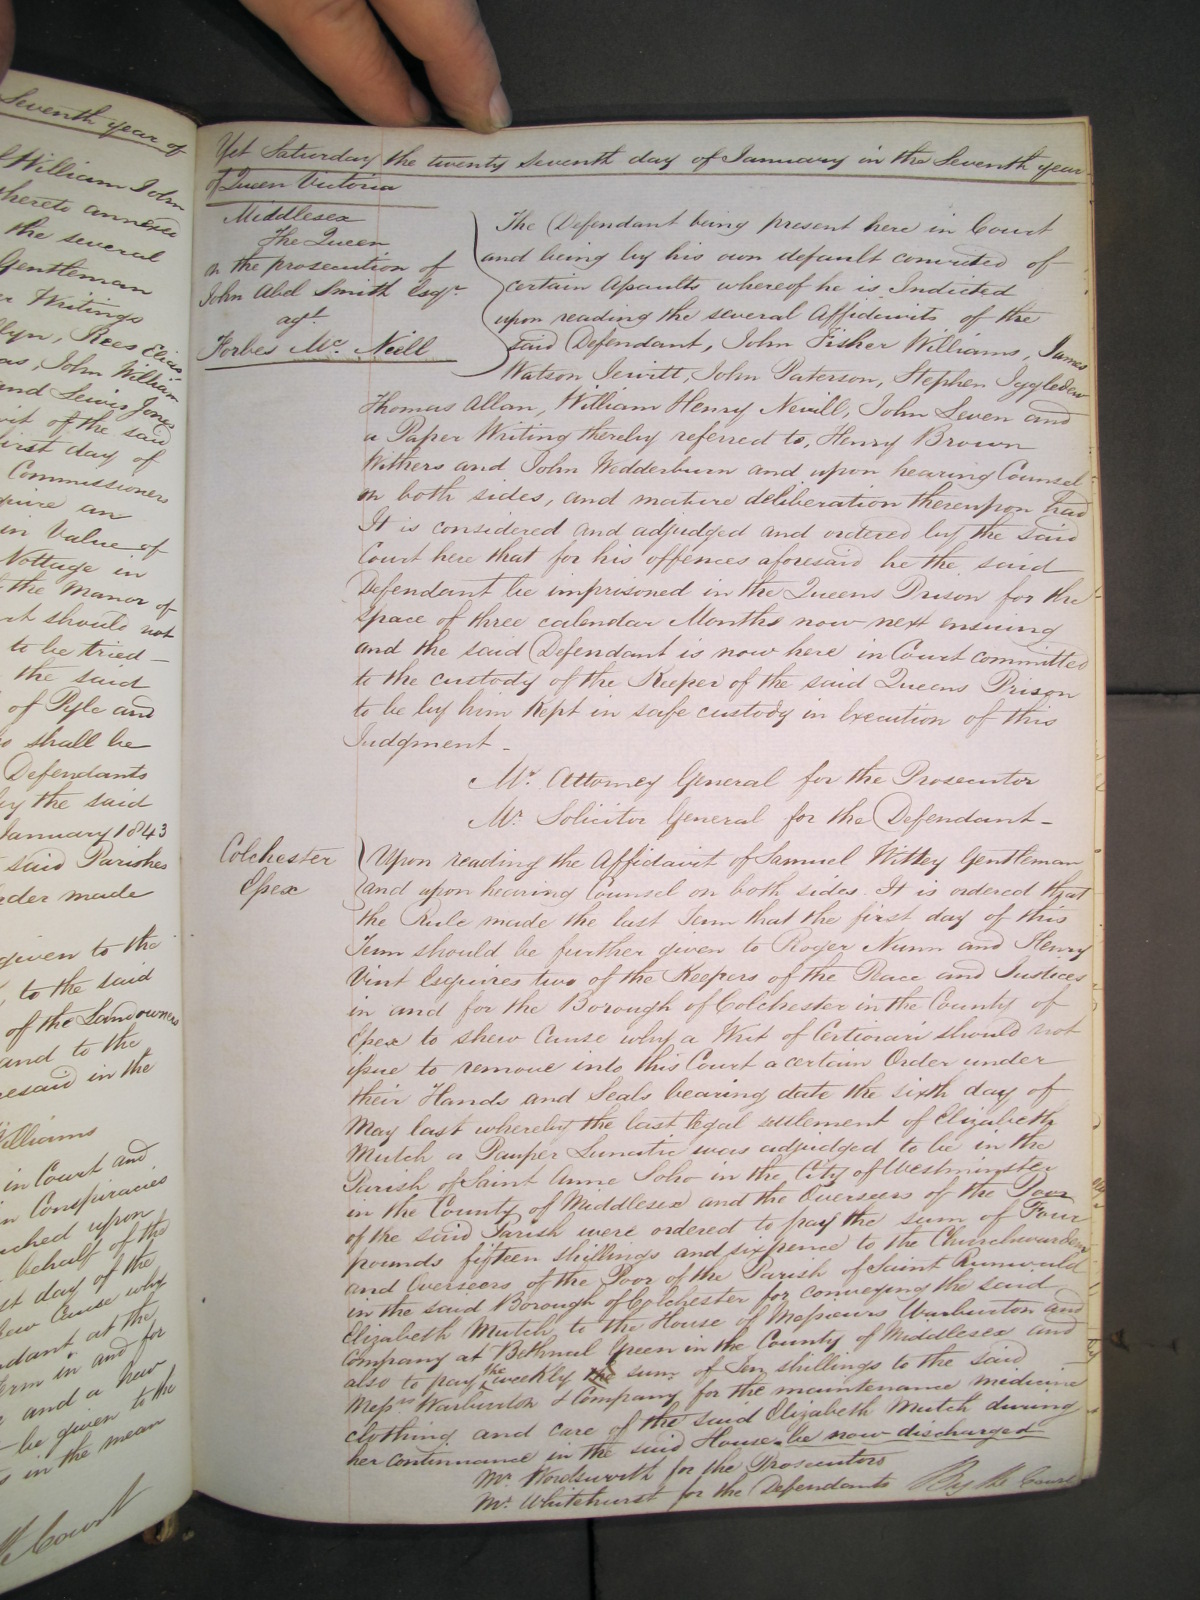 Seventh year of
William John
thereto annexed
the several
Gentleman
Writings
Rees Elias
John William
and Lewis Jones
of the said
first day of
Commissioners
an
in Value of
Nottage in
the Manor of
should not
to be tried
the said
of Pyle and
shall be
Defendants
by the said
January 1843
said Parishes
made
given to the
to the said
of the Landowners
and to the
in the
Williams
in Court and
Conspiracies
upon
behalf of the
day of the
Cause why
at the
Term in and for
and a New
be given to the
in the mean
Court
Yet Saturday the twenty seventh day of January in the Seventh year
of Queen Victoria
Middlesex
The Queen
on the prosecution of
John Abel Smith Esqr.
agt.
Forbes Mc. Neill
The Defendant being present here in Court
and being by his own default convicted of
certain Assaults whereof he is Indicted
upon reading the several Affidavits of the
said Defendant, John Fisher Williams, James
Watson Jewitt, John Paterson, Stephen Iggleden
Thomas Allan, William Henry Nevill, John Leven and
a Paper Writing thereby referred to, Henry Brown
Withers and John Wedderburn and upon hearing Counsel
on both sides, and mature deliberation thereupon had
It is considered and adjudged and ordered by the said
Court here that for his offences aforesaid he the said
Defendant be imprisoned in the Queens Prison for the
space of three calendar Months now next ensuing
and the said Defendant is now here in Court committed
to the custody of the Keeper of the said Queens Prison
to be by him kept in safe custody in execution of this
Judgment -
Mr. Attorney General for the Prosecutor
Mr. Solicitor General for the Defendant -
Colchester
Essex
Upon reading the Affidavit of Samuel Wittey Gentleman
and upon hearing Counsel on both sides It is ordered that
the Rule made the last Term that the first day of this
Term should be further given to Roger Nunn and Henry
Vint Esquires two of the Keepers of the Peace and Justices
in and for the Borough of Colchester in the County of
Essex to shew Cause why a Writ of Certiorari should not
issue to remove into this Court a certain Order under
their Hands and Seals bearing date the sixth day of
May last whereby the last legal settlement of Elizabeth
Mutch a Pauper Lunatic was adjudged to be in the
Parish of Saint Anne Soho in the City of Westminster
in the County of Middlesex and the Overseers of the Poor
of the said Parish were ordered to pay the sum of Four
pounds fifteen shillings and sixpence to the Churchwardens
and Overseers of the Poor of the Parish of Saint Runwald
in the said Borough of Colchester for conveying the said
Elizabeth Mutch to the House of Messieurs Warburton and
Company at Bethnal Green in the County of Middlesex and
also to pay the weekly sum of Ten shillings to the said
Messrs Warburton & Company for the maintenance medicine
clothing and care of the said Elizabeth Mutch during
her continuance in the said House be now discharged
Mr. Wordsworth for the Prosecutors
Mr. Whitehurst for the Defendants By the Court